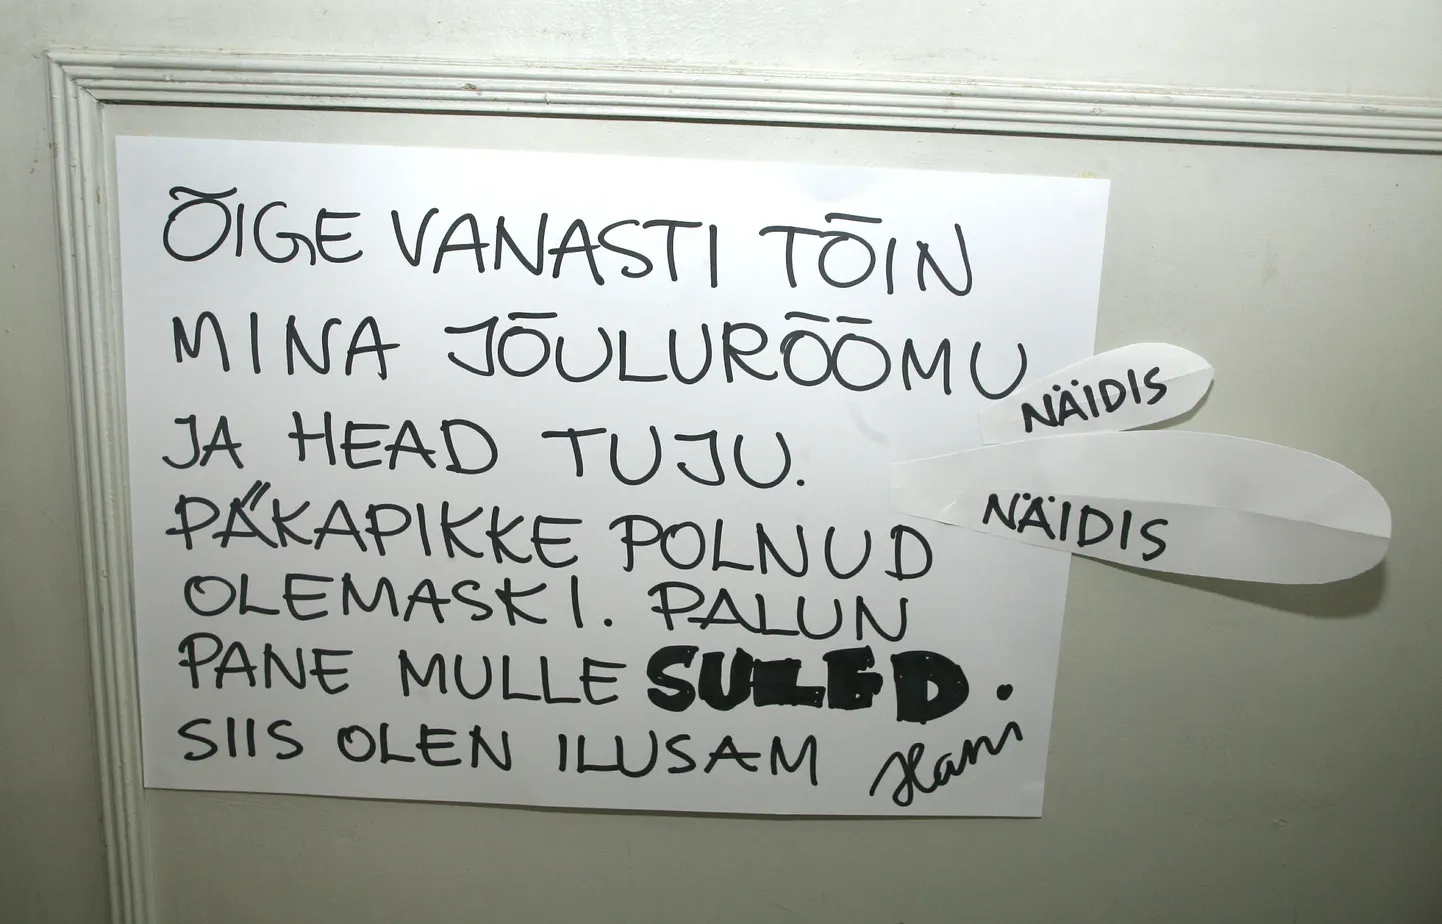 ÕIGE VANASTI TÕIN
MINA JÕULURÕÕMU
JA HEAD TUJU.
PÄKAPIKKE POLNUD
OLEMASKI. PALUN
PANE MULLE SULED.
SIIS OLEN ILUSAM
Hani
NÄIDIS
NÄIDIS